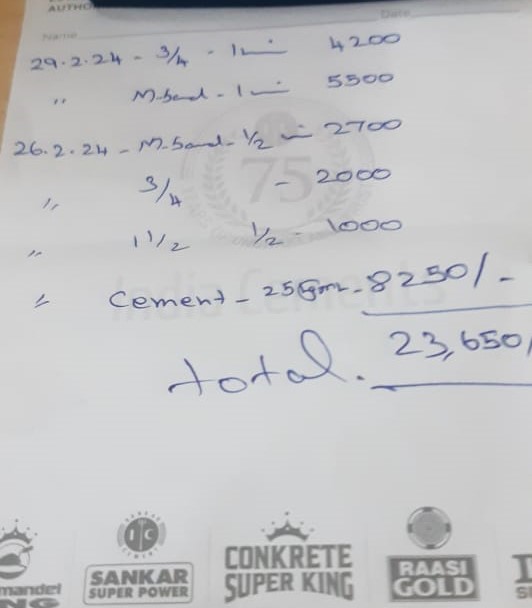 AUTHO
Name
Date
29.2.24 - 3/4 - 1 4200
" M.Sand - 1 5500
26.2.24 - M.Sand - 1/2 2700
" 3/4 - 2000
" 1 1/2 1/2 - 1000
" Cement - 25 - 8250/-
total. 23,650/
75
India Cements
mandel
NG
SANKAR
SUPER POWER
CONKRETE
SUPER KING
RAASI
GOLD